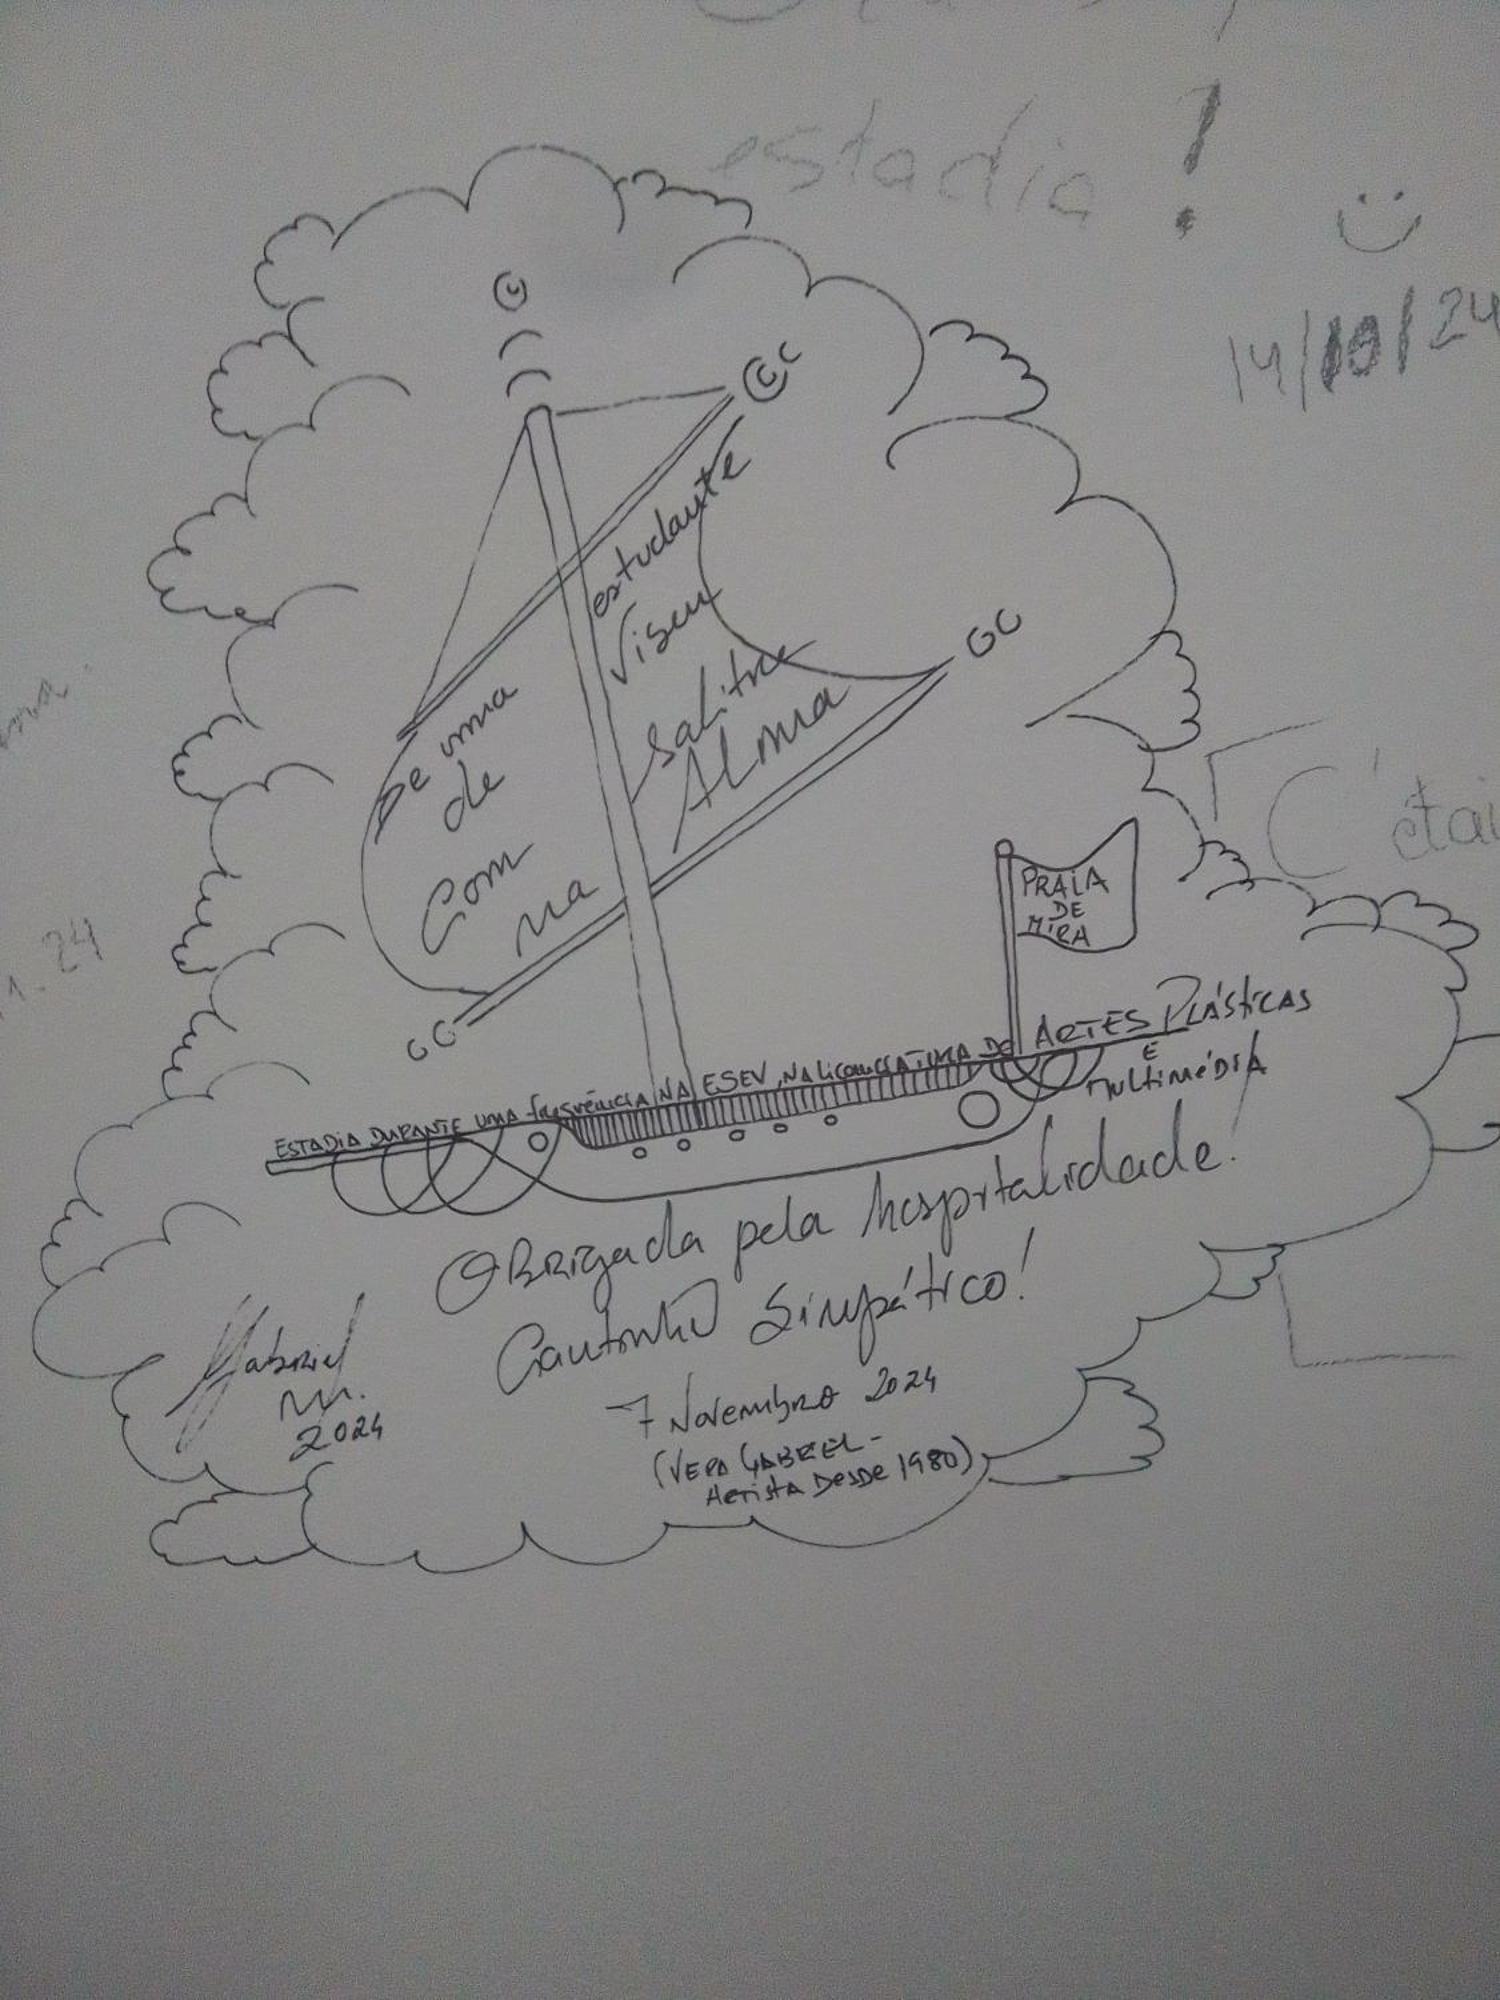 estadia !
14/10/24
De uma estudante
de Viseu
Com Salitre
na Alma
PRAIA
DE
MIRA
24
C'étai
ESTADIA DURANTE UMA frequência NA ESEV, NA licenciATURA DE ARTES PLÁSticAS
E
Multimédia
OBRigada pela hospitalidade!
Cantinho Simpático!
Gabriel
2024
7 Novembro 2024
(VERA GABRIEL -
Artista Desde 1980)